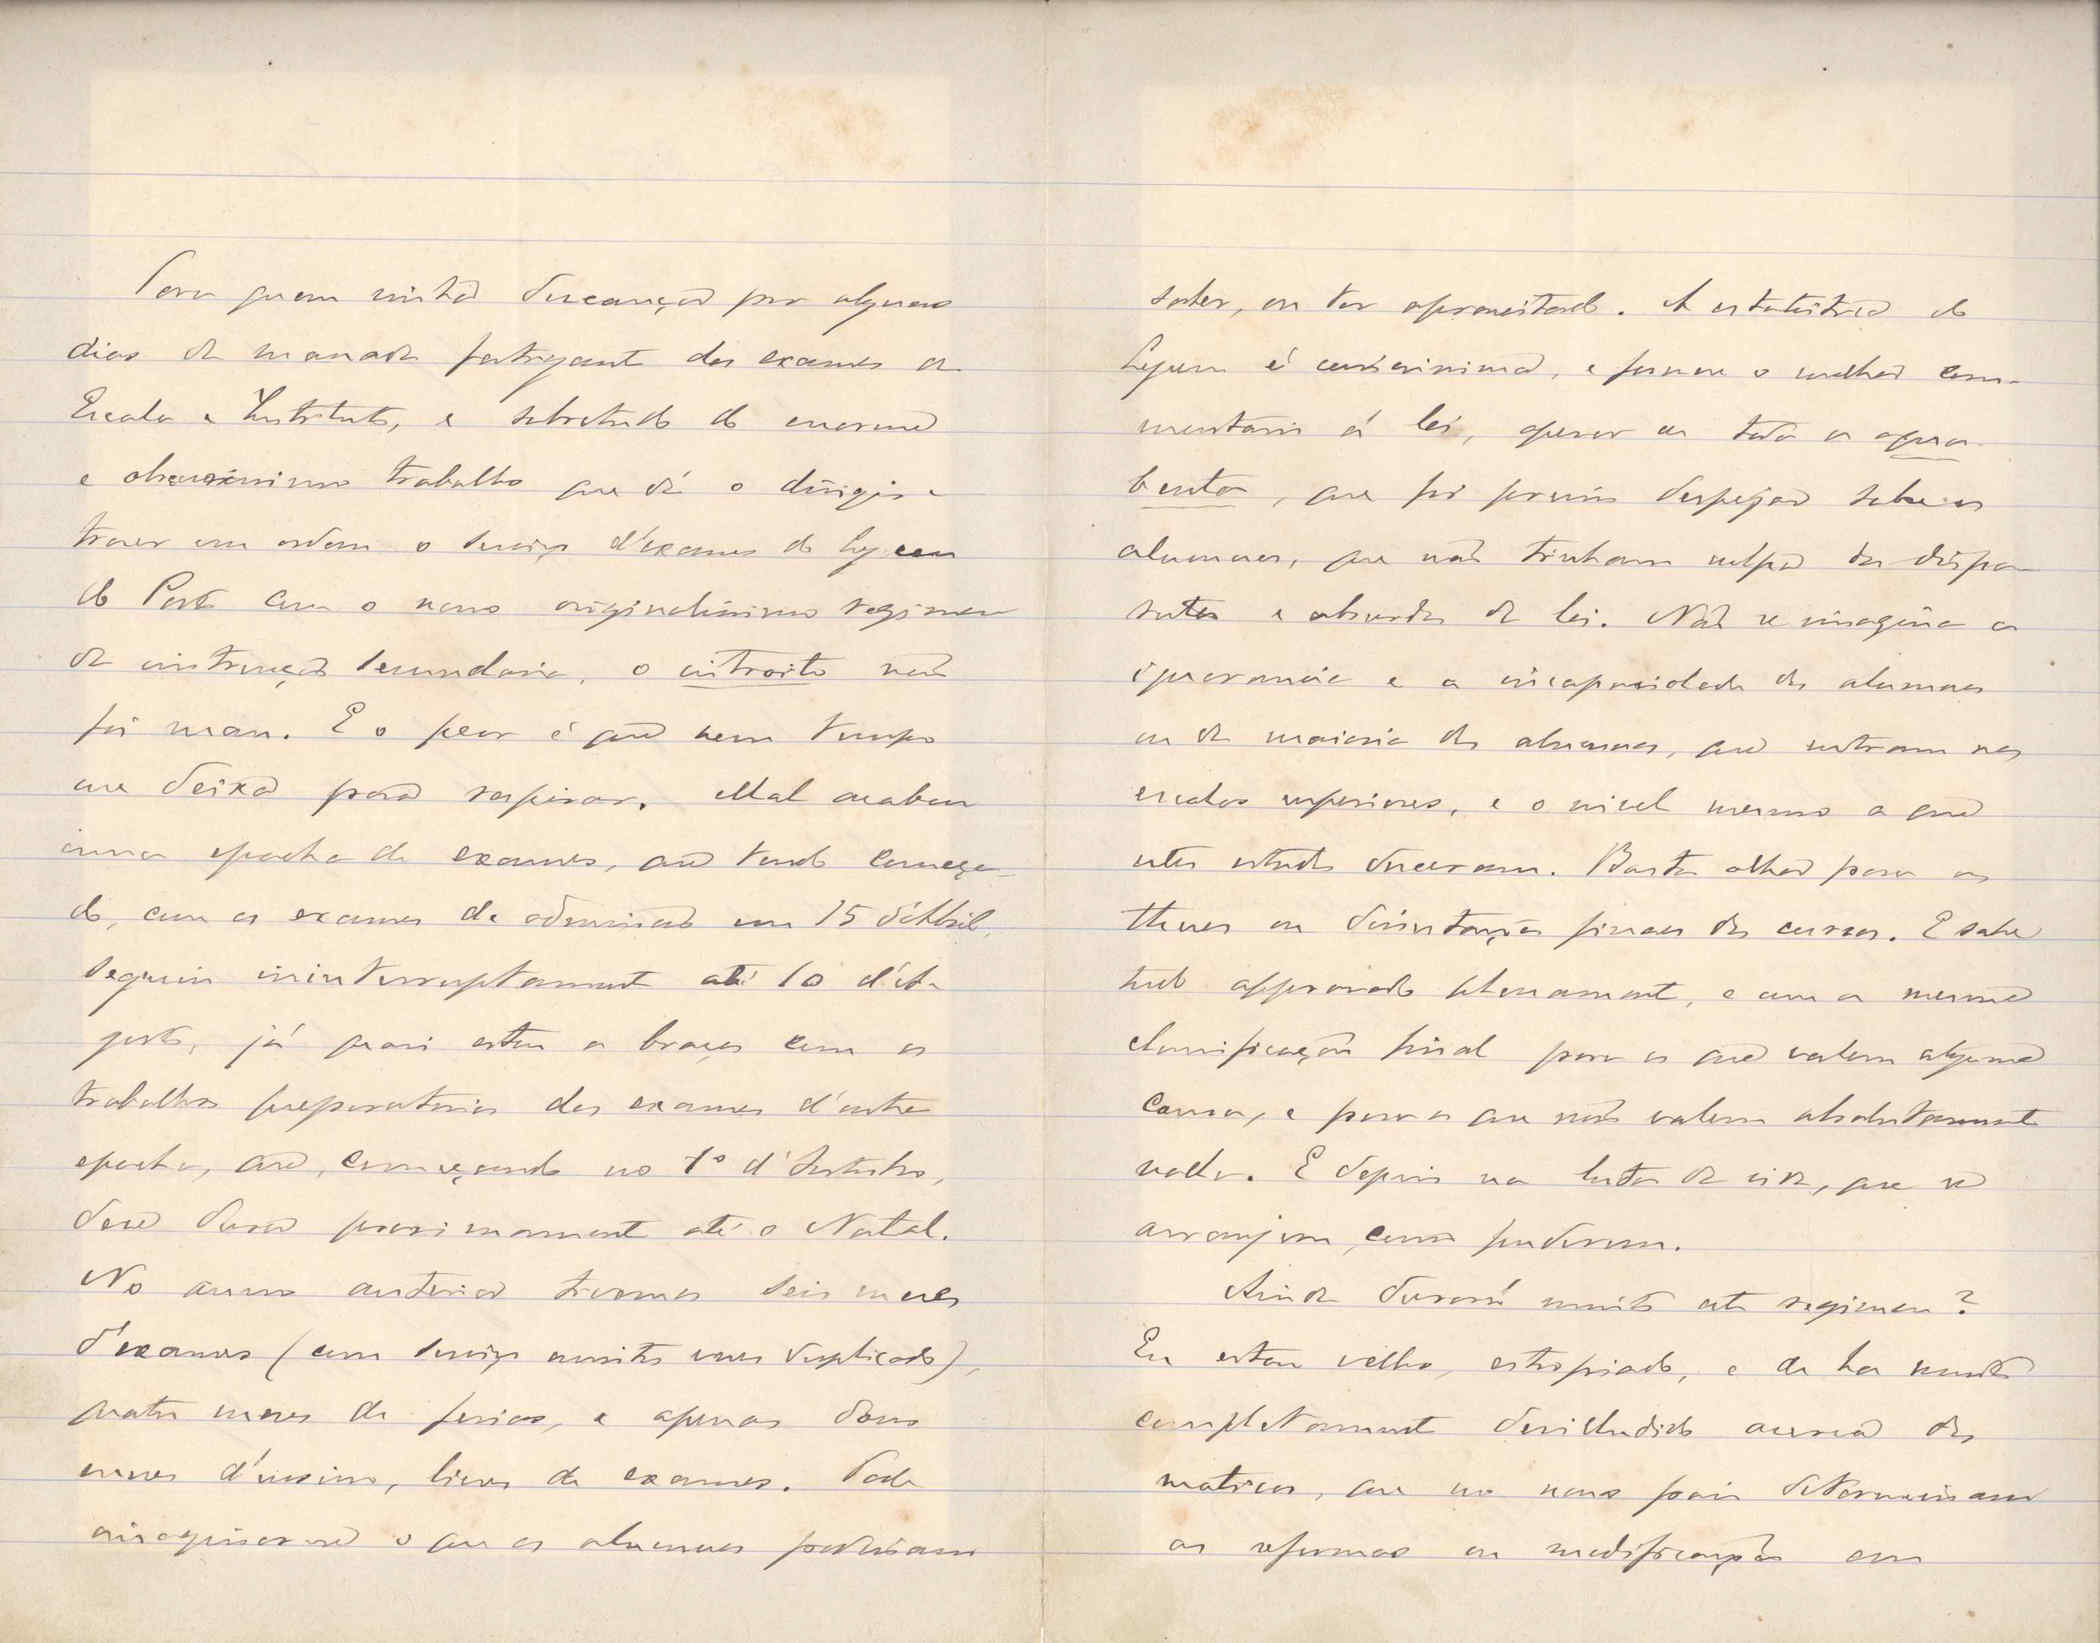 Para quem vinha descançar por alguns
dias da massada fatigante dos exames da
Escola e Instituto, e sobretudo do enorme
e obscurissimo trabalho que dá o dirigir e
trazer em ordem o serviço d'exames do Lyceu
do Porto com o novo originalissimo regimen
da instrucção secundaria, o introito não
foi mau. E o peor é que nem tempo
me deixa para respirar. Mal acabou
uma epocha de exames, que tendo começa-
do, com os exames de admissão em 15 d'Abril,
seguiu ininterruptamente até 10 d'A-
gosto, já quasi estou a braços com os
trabalhos preparatorios dos exames d'outra
epocha, que, começando no 1º d'Outubro,
deve durar proximamente até o Natal.
No anno anterior tivemos seis mezes
d'exames (com serviço muitas vezes duplicado),
quatro mezes de ferias, e apenas dous
mezes d'ensino, livres de exames. Pode
imaginar-se o que os alumnos poderiam
saber, ou ter aproveitado. A estatistica do
Lyceu é curiosissima, e fornece o melhor com-
mentario á lei, apesar de toda a agua
benta, que foi preciso despejar sobre os
alumnos, que não tinham culpa dos dispa-
rates e absurdos da lei. Não se imagina a
ignorancia e a incapacidade dos alumnos
ou da maioria dos alumnos, que entram nas
escolas superiores, e o nivel mesmo a que
estes estudos desceram. Basta olhar para as
theses ou dissertações finaes dos cursos. E sahe
tudo approvado plenamente, e com a mesma
classificação final para os que valem alguma
cousa, e para os que não valem absolutamente
nada. E depois na lucta da vida, que se
arranjem como puderem.
Ainda durará muito este regimen?
Eu estou velho, estropiado, e de ha muito
completamente desilludido acerca dos
motivos, que no nosso paiz determinam
as reformas ou modificações em